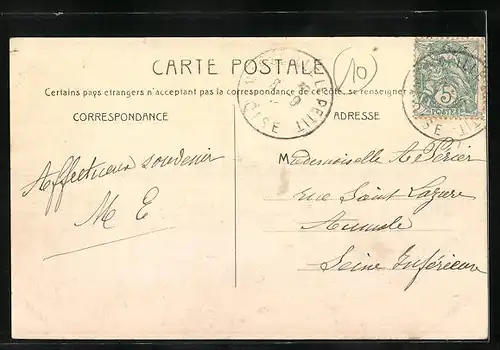 CARTE POSTALE
(10)
Certains pays étrangers n'acceptant pas la correspondance de ce côté, se renseigner à
CORRESPONDANCE
ADRESSE
PETIT
OISE
5c
OISE
Affectueux souvenir
M E
Mademoiselle A. Périer
rue Saint Lazare
Aumale
Seine Inférieure